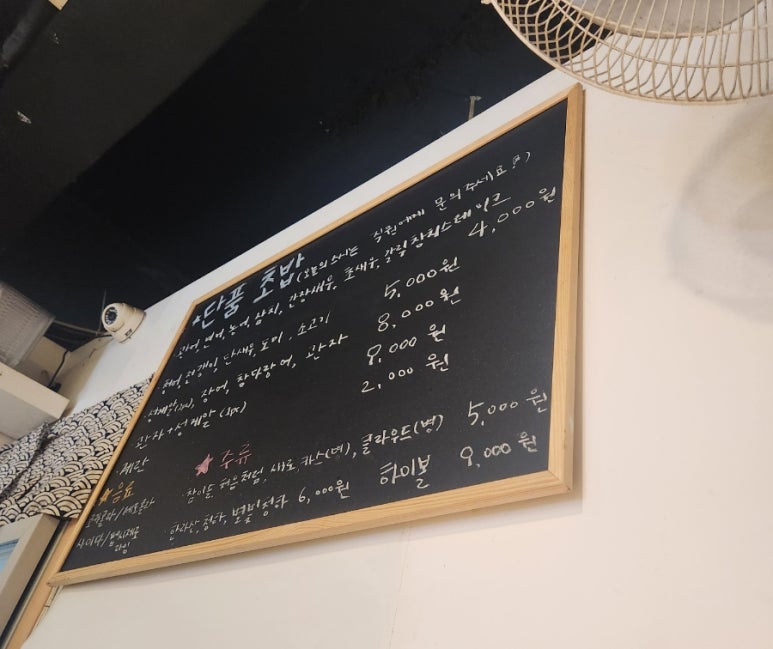 *단품 초밥 (오늘의 스시는 직원에게 문의주세요!)
·광어, 연어, 농어, 참치, 간장새우, 초새우, 갈릭참치스테이크 4,000원
·청어, 전갱이, 단새우, 도미, 소고기 5,000원
·성게알(1pc), 장어, 참당랑어, 관자 8,000원
·관자+성게알(1pc) 8,000원
·계란 2,000원
★음료
콜라/제로콜라
사이다/
라임
★주류
·참이슬, 처음처럼, 새로, 카스(병), 클라우드(병) 5,000원
·한라산, 청하, 별빛청하 6,000원 하이볼 9,000원